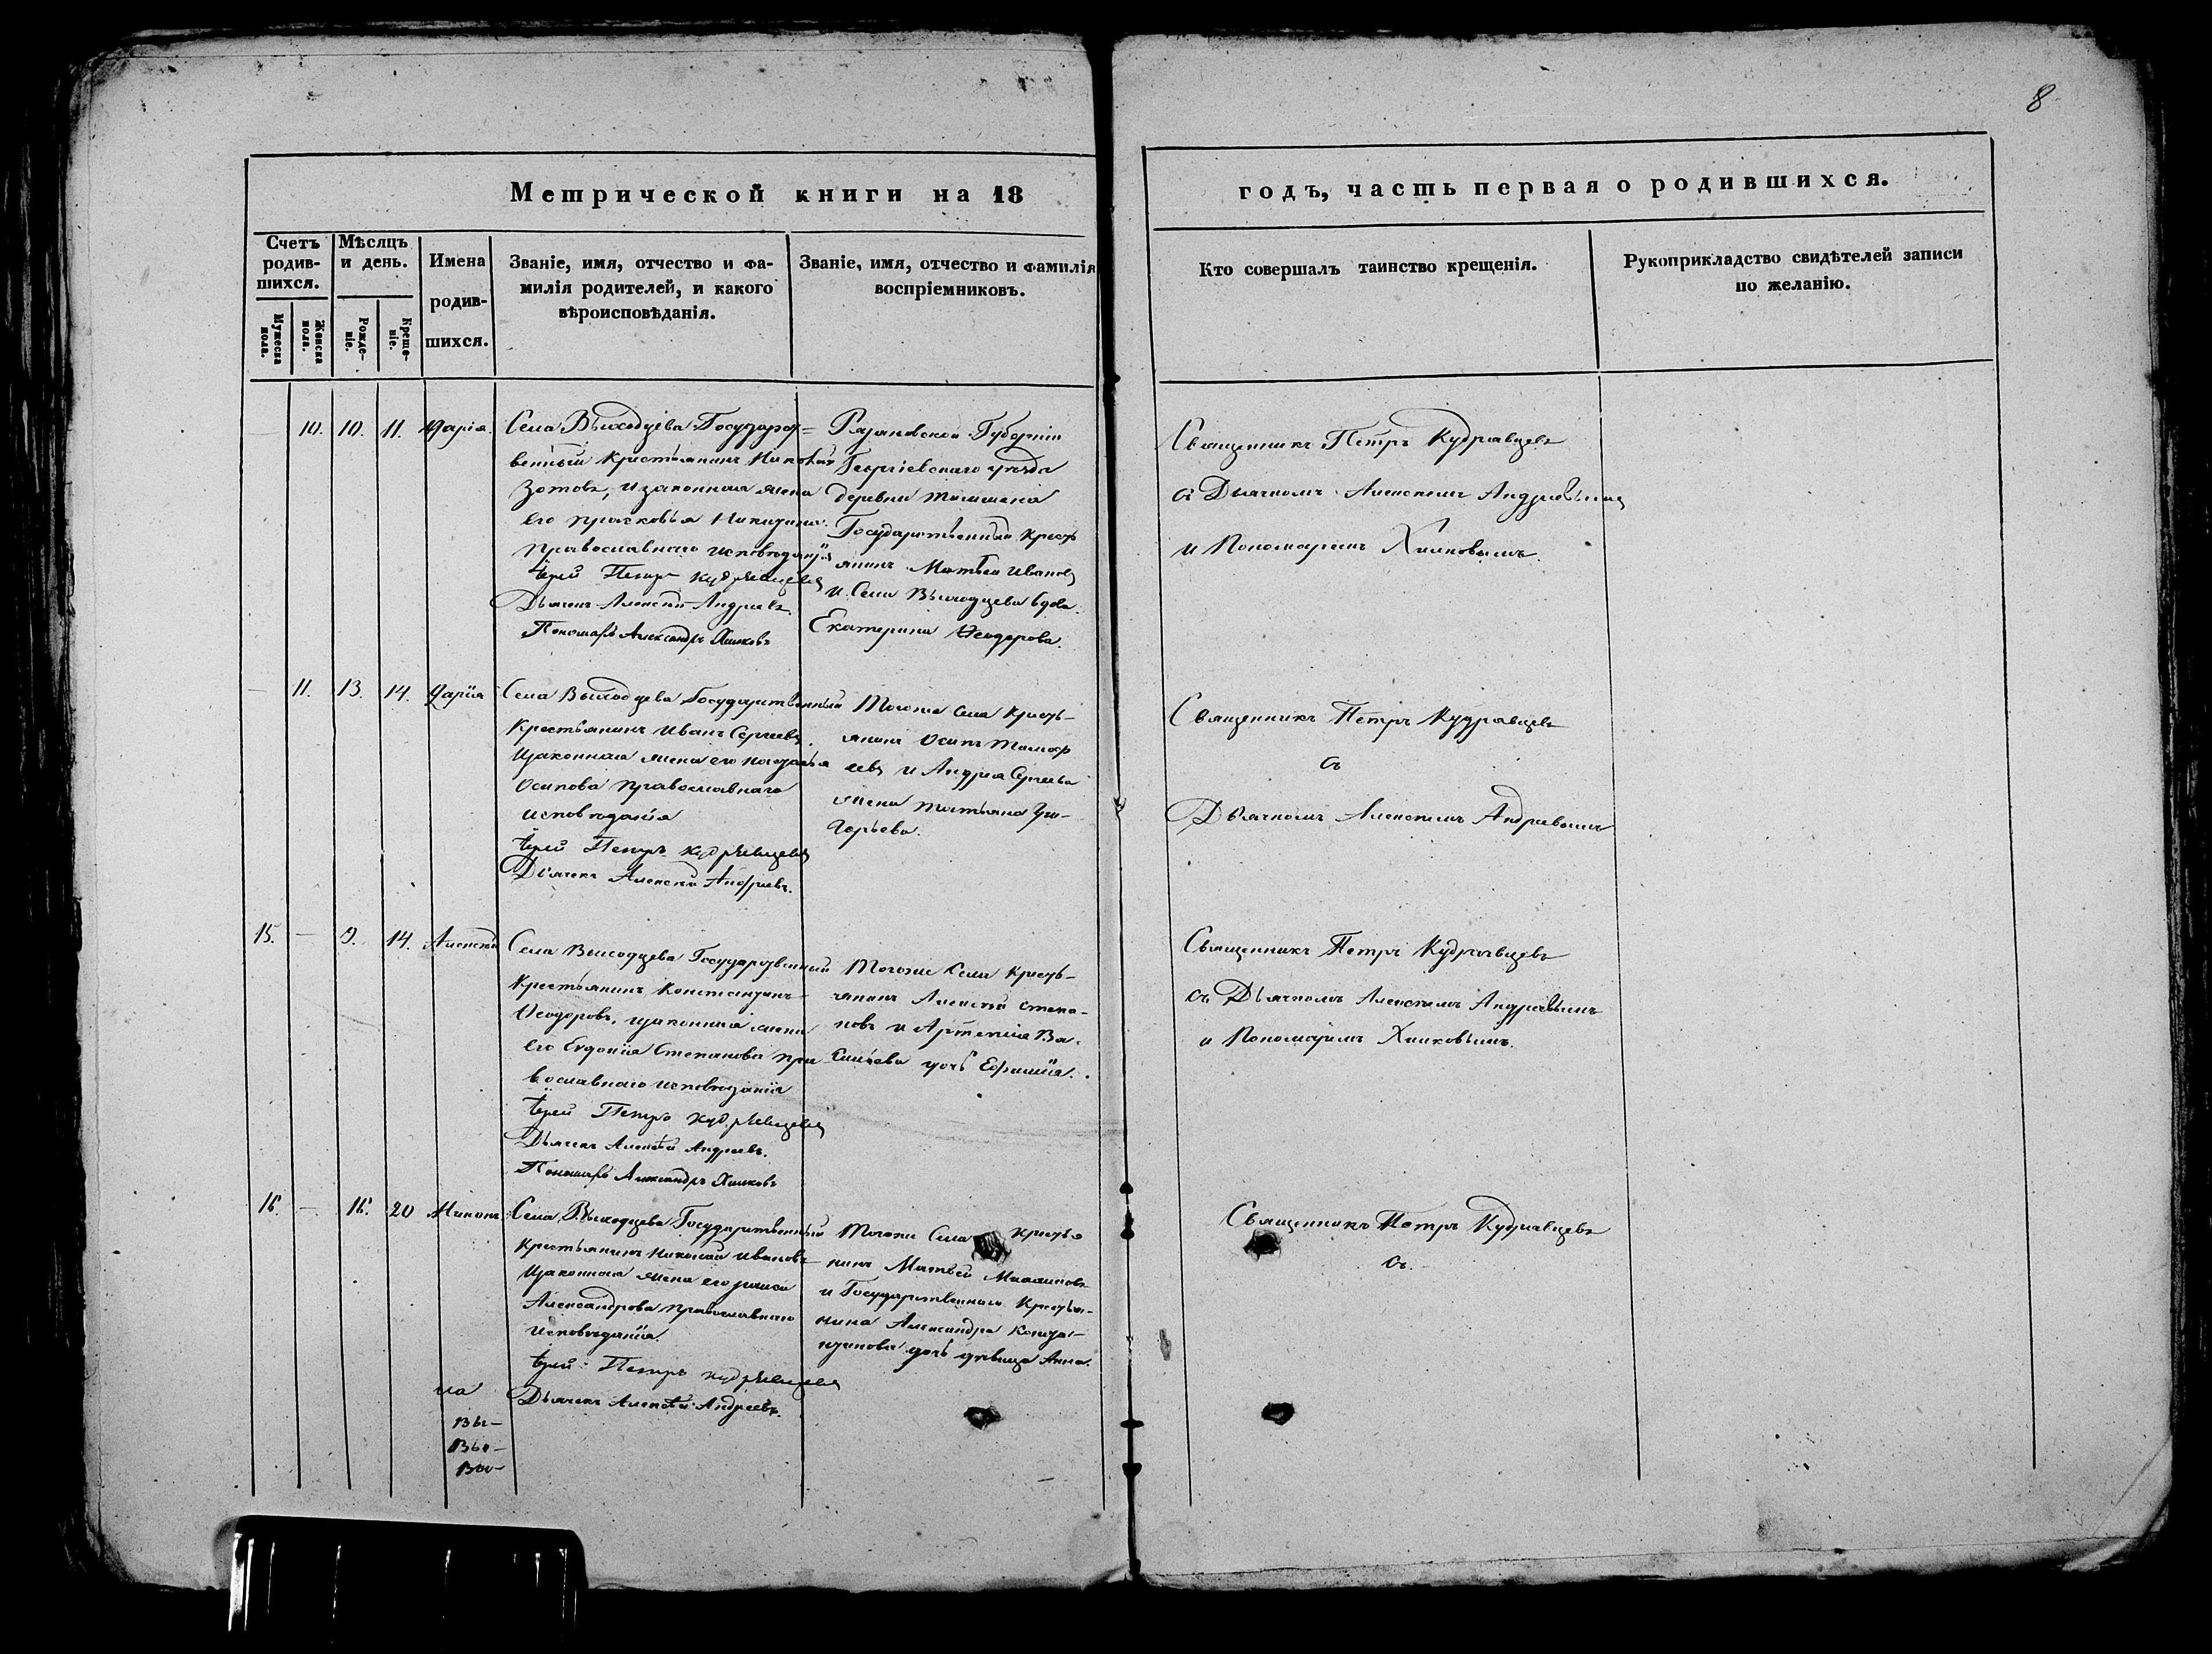 8
Метрической книги на 18
годъ, часть первая о родившихся.
Счетъ родив-шихся.
Мужеска пола.
Женска пола.
Мѣсяцъ и день.
Рожде-ніе.
Креще-ніе.
Имена родив-шихся.
Званіе, имя, отчество и фа-
милія родителей, и какого
вѣроисповѣданія.
Званіе, имя, отчество и фамилія
воспріемниковъ.
Кто совершалъ таинство крещенія.
Рукоприкладство свидѣтелей записи
по желанію.
10. 10. 11. Дарія.
Села Выходцева Государст=
венный Крестьянинъ
Зотовъ, и законная жена
его Никитина
православнаго исповѣданія
Іерей Петръ Кудрявцевъ
Дьячекъ Алексѣй Андреевъ.
Пономарь Александръ Хилковъ
Рязанской Губерніи
уѣзда
деревни
Государственный кресть
янинъ Матвей Ивановъ
и Села Выходцева вдова
Екатерина Ѳеодорова.
Священникъ Петръ Кудрявцевъ
съ Дьячкомъ Алексѣемъ Андреевымъ
и Пономаремъ Хилковымъ.
11. 13. 14. Дарія
Села Выходцева Государственный
Крестьянинъ Иванъ Сергеевъ
Изаконная жена его Наталья
Осипова православнаго
исповѣданія
Іерей Петръ Кудрявцевъ
Дьячекъ Алексѣй Андреевъ.
Тогоже Села Кресть-
янинъ Осипъ Тимоф
еевъ и Андрея Сергеева
жена Татьяна Гри-
горьева.
Священникъ Петръ Кудрявцевъ
съ
Дьячкомъ Алексѣемъ Андреевымъ
15. — 9. 14. Алексѣй
Села Выходцева Государственный
Крестьянинъ Константинъ
Ѳеодоровъ, изаконная жена
его Евдокія Степанова пра
вославнаго исповѣданія
Іерей Петръ Кудрявцевъ
Дьячекъ Алексѣй Андреевъ.
Пономарь Александръ Хилковъ
Тогоже Села Кресть-
янинъ Алексѣй Степа-
новъ и Артемія Ва-
сильева дочь
Священникъ Петръ Кудрявцевъ
съ Дьячкомъ Алексѣемъ Андреевымъ
и Пономаремъ Хилковымъ.
16. — 16. 20
Села Выходцева Государственный
Крестьянинъ Николай Ивановъ
Изаконная жена его
Александрова православнаго
исповѣданія.
Іерей Петръ Кудрявцевъ
Дьячекъ Алексѣй Андреевъ.
Тогоже Села Крестья
нинъ Матвей
и Государственнаго Крестья-
нина Александра Конста-
нтинова дочь дѣвица Анна.
Священникъ Петръ Кудрявцевъ
съ.
на
Вы-
Вы-